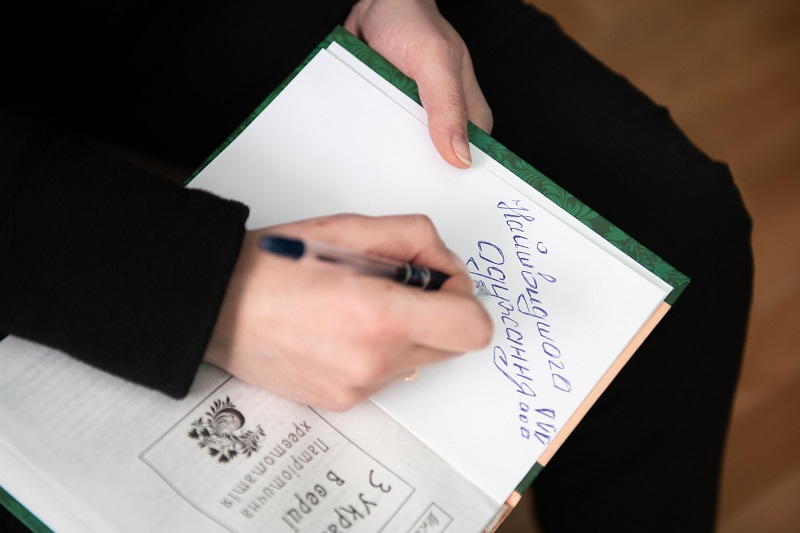 Найшвидшого !!!
Одужання...
З Укра
В серці
Патріотична
хрестоматія